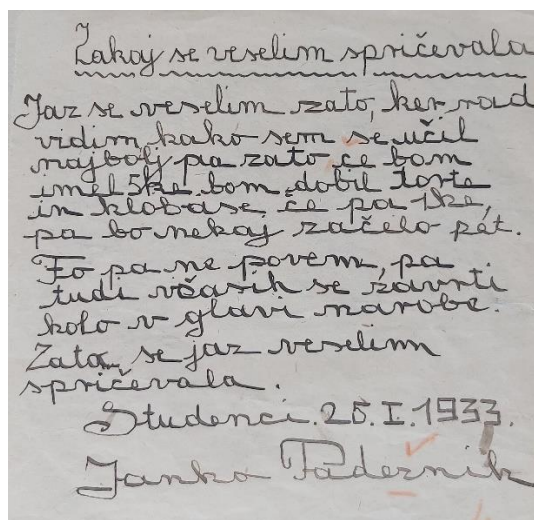 Zakaj se veselim spričevala
Jaz se veselim zato, ker rad
vidim, kako sem se učil
najbolj pa zato če bom
imel 5ke bom dobil torte
in klobase, če pa 1ke,
pa bo nekaj začelo pét.
To pa ne povem, pa
tudi včasih se zavrti
kolo v glavi narobe.
Zato se jaz veselim
spričevala.
Studenci. 25. I. 1933.
Janko Padeznik